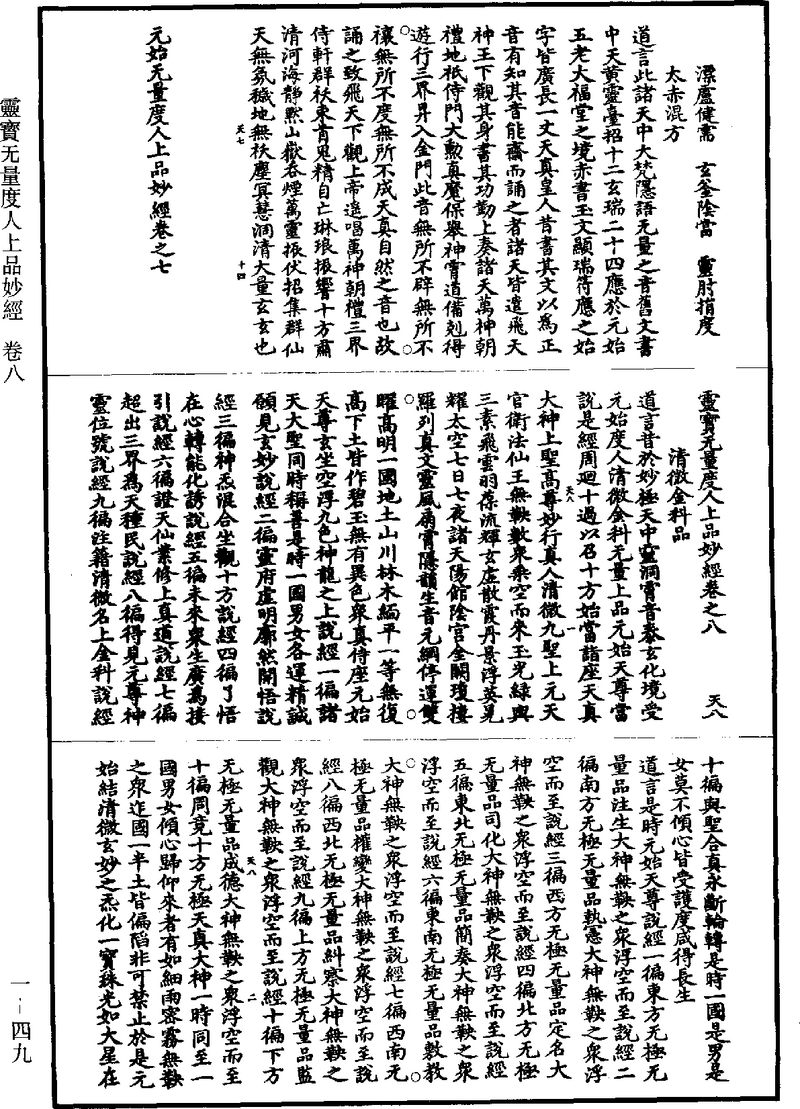 漂盧健需　玄釜陰當　靈肘捎度
太赤混方
道言此諸天中大梵隱語无量之音舊文書
中天黃靈臺招十二玄瑞二十四應於元始
五老大福堂之境赤書玉文顯瑞符應之始
字皆廣長一丈天真皇人昔書其文以為正
音有知其音能齋而誦之者諸天皆遣飛天
神王下觀其身書其功勤上奏諸天萬神朝
禮地祇侍門大勳真魔保舉神霄道備剋得
遊行三界昇入金門此音無所不辟無所不
禳無所不度無所不成天真自然之音也故
誦之致飛天下觀上帝遥唱萬神朝禮三界
侍軒群祆束首鬼精自亡琳琅振響十方肅
清河海靜默山嶽吞煙萬靈振伏招集群仙
天無氛穢地無祆塵冥慧洞清大量玄玄也
天七　十四
元始无量度人上品妙經卷之七
靈寶无量度人上品妙經卷之八　天八
清微金科品
道言昔於妙極天中靈洞寶音泰玄化境受
元始度人清微金科无量上品元始天尊當
說是經周迴十過以召十方始當詣座天真
大神上聖高尊妙行真人清微九聖上元天
天八　一
官衛法仙王無鞅數衆乘空而來玉光綠輿
三素飛雲羽葆流輝玄虛散霞丹景浮英晃
耀太空七日七夜諸天陽館陰宮金闕瓊樓
羅列真文靈風扇寶隱韻生音元綱停運雙
曜高明一國地土山川林木緬平一等無復
高下土皆作碧玉無有異色衆真侍座元始
天尊玄坐空浮九色神龍之上說經一徧諸
天大聖同時稱善是時一國男女各運精誠
領見玄妙說經二徧靈府虛明廓然開悟說
經三徧神炁混合坐觀十方說經四徧了悟
在心轉能化誘說經五徧未來衆生廣為接
引說經六徧證天仙業修上真道說經七徧
超出三界為天種民說經八徧得見元尊神
靈位號說經九徧注籍清微名上金科說經
十徧與聖合真永斷輪轉是時一國是男是
女莫不傾心皆受護度咸得長生
道言是時元始天尊說經一徧東方无極无
量品注生大神無鞅之衆浮空而至說經二
徧南方无極无量品執憲大神無鞅之衆浮
空而至說經三徧西方无極无量品定名大
神無鞅之衆浮空而至說經四徧北方无極
无量品司化大神無鞅之衆浮空而至說經
五徧東北无極无量品簡奏大神無鞅之衆
浮空而至說經六徧東南无極无量品敷教
大神無鞅之衆浮空而至說經七徧西南无
極无量品權變大神無鞅之衆浮空而至說
經八徧西北无極无量品糾察大神無鞅之
衆浮空而至說經九徧上方无極无量品監
觀大神無鞅之衆浮空而至說經十徧下方
天八　二
无極无量品威德大神無鞅之衆浮空而至
十徧周竟十方无極天真大神一時同至一
國男女傾心歸仰來者有如細雨密霧無鞅
之衆迮國一半土皆偏陷非可禁止於是元
始結清微玄妙之炁化一寶珠光如大星在
靈寶无量度人上品妙經　卷八
一－四九